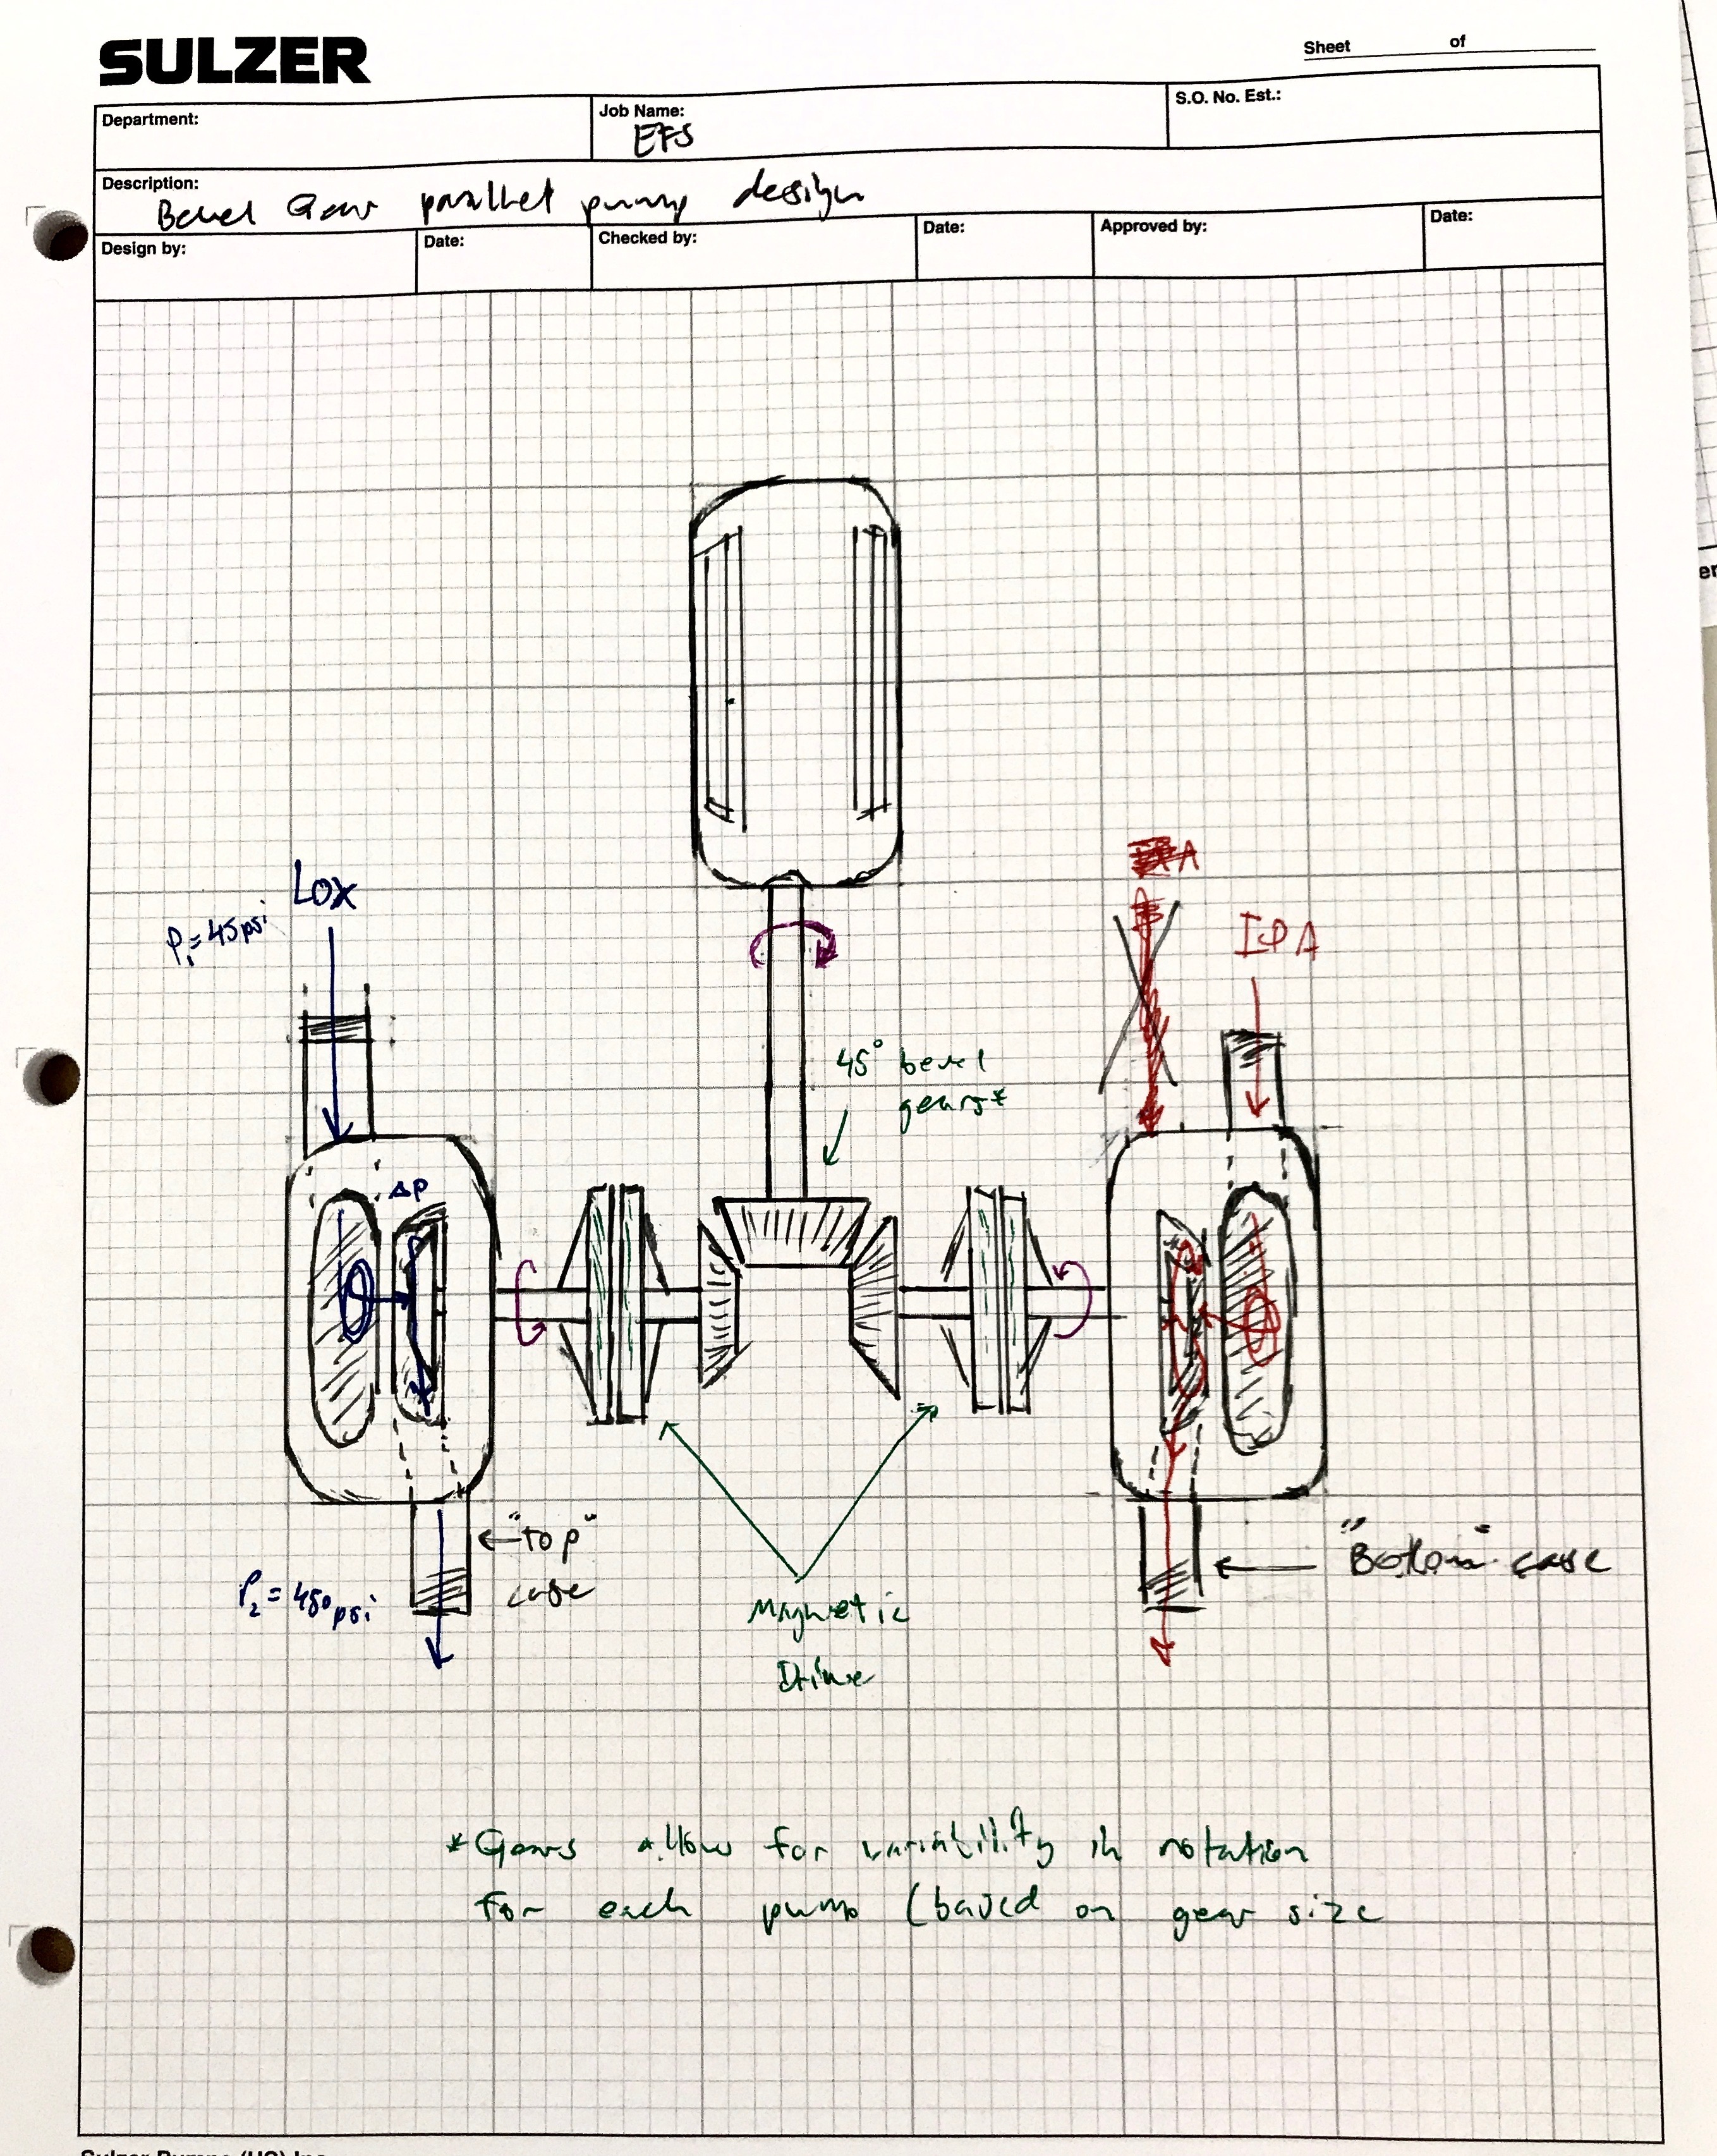 SULZER
Sheet of
Department:
Job Name:
EFS
S.O. No. Est.:
Description:
Bevel Gear parallel pump design
Design by:
Date:
Checked by:
Date:
Approved by:
Date:
LOX
P1 = 45psi
IPA
45° bevel
gears*
ΔP
"top"
case
P2 = 450psi
"Bottom" case
Magnetic
Drive
*Gears allow for variability in rotation
for each pump (based on gear size
er